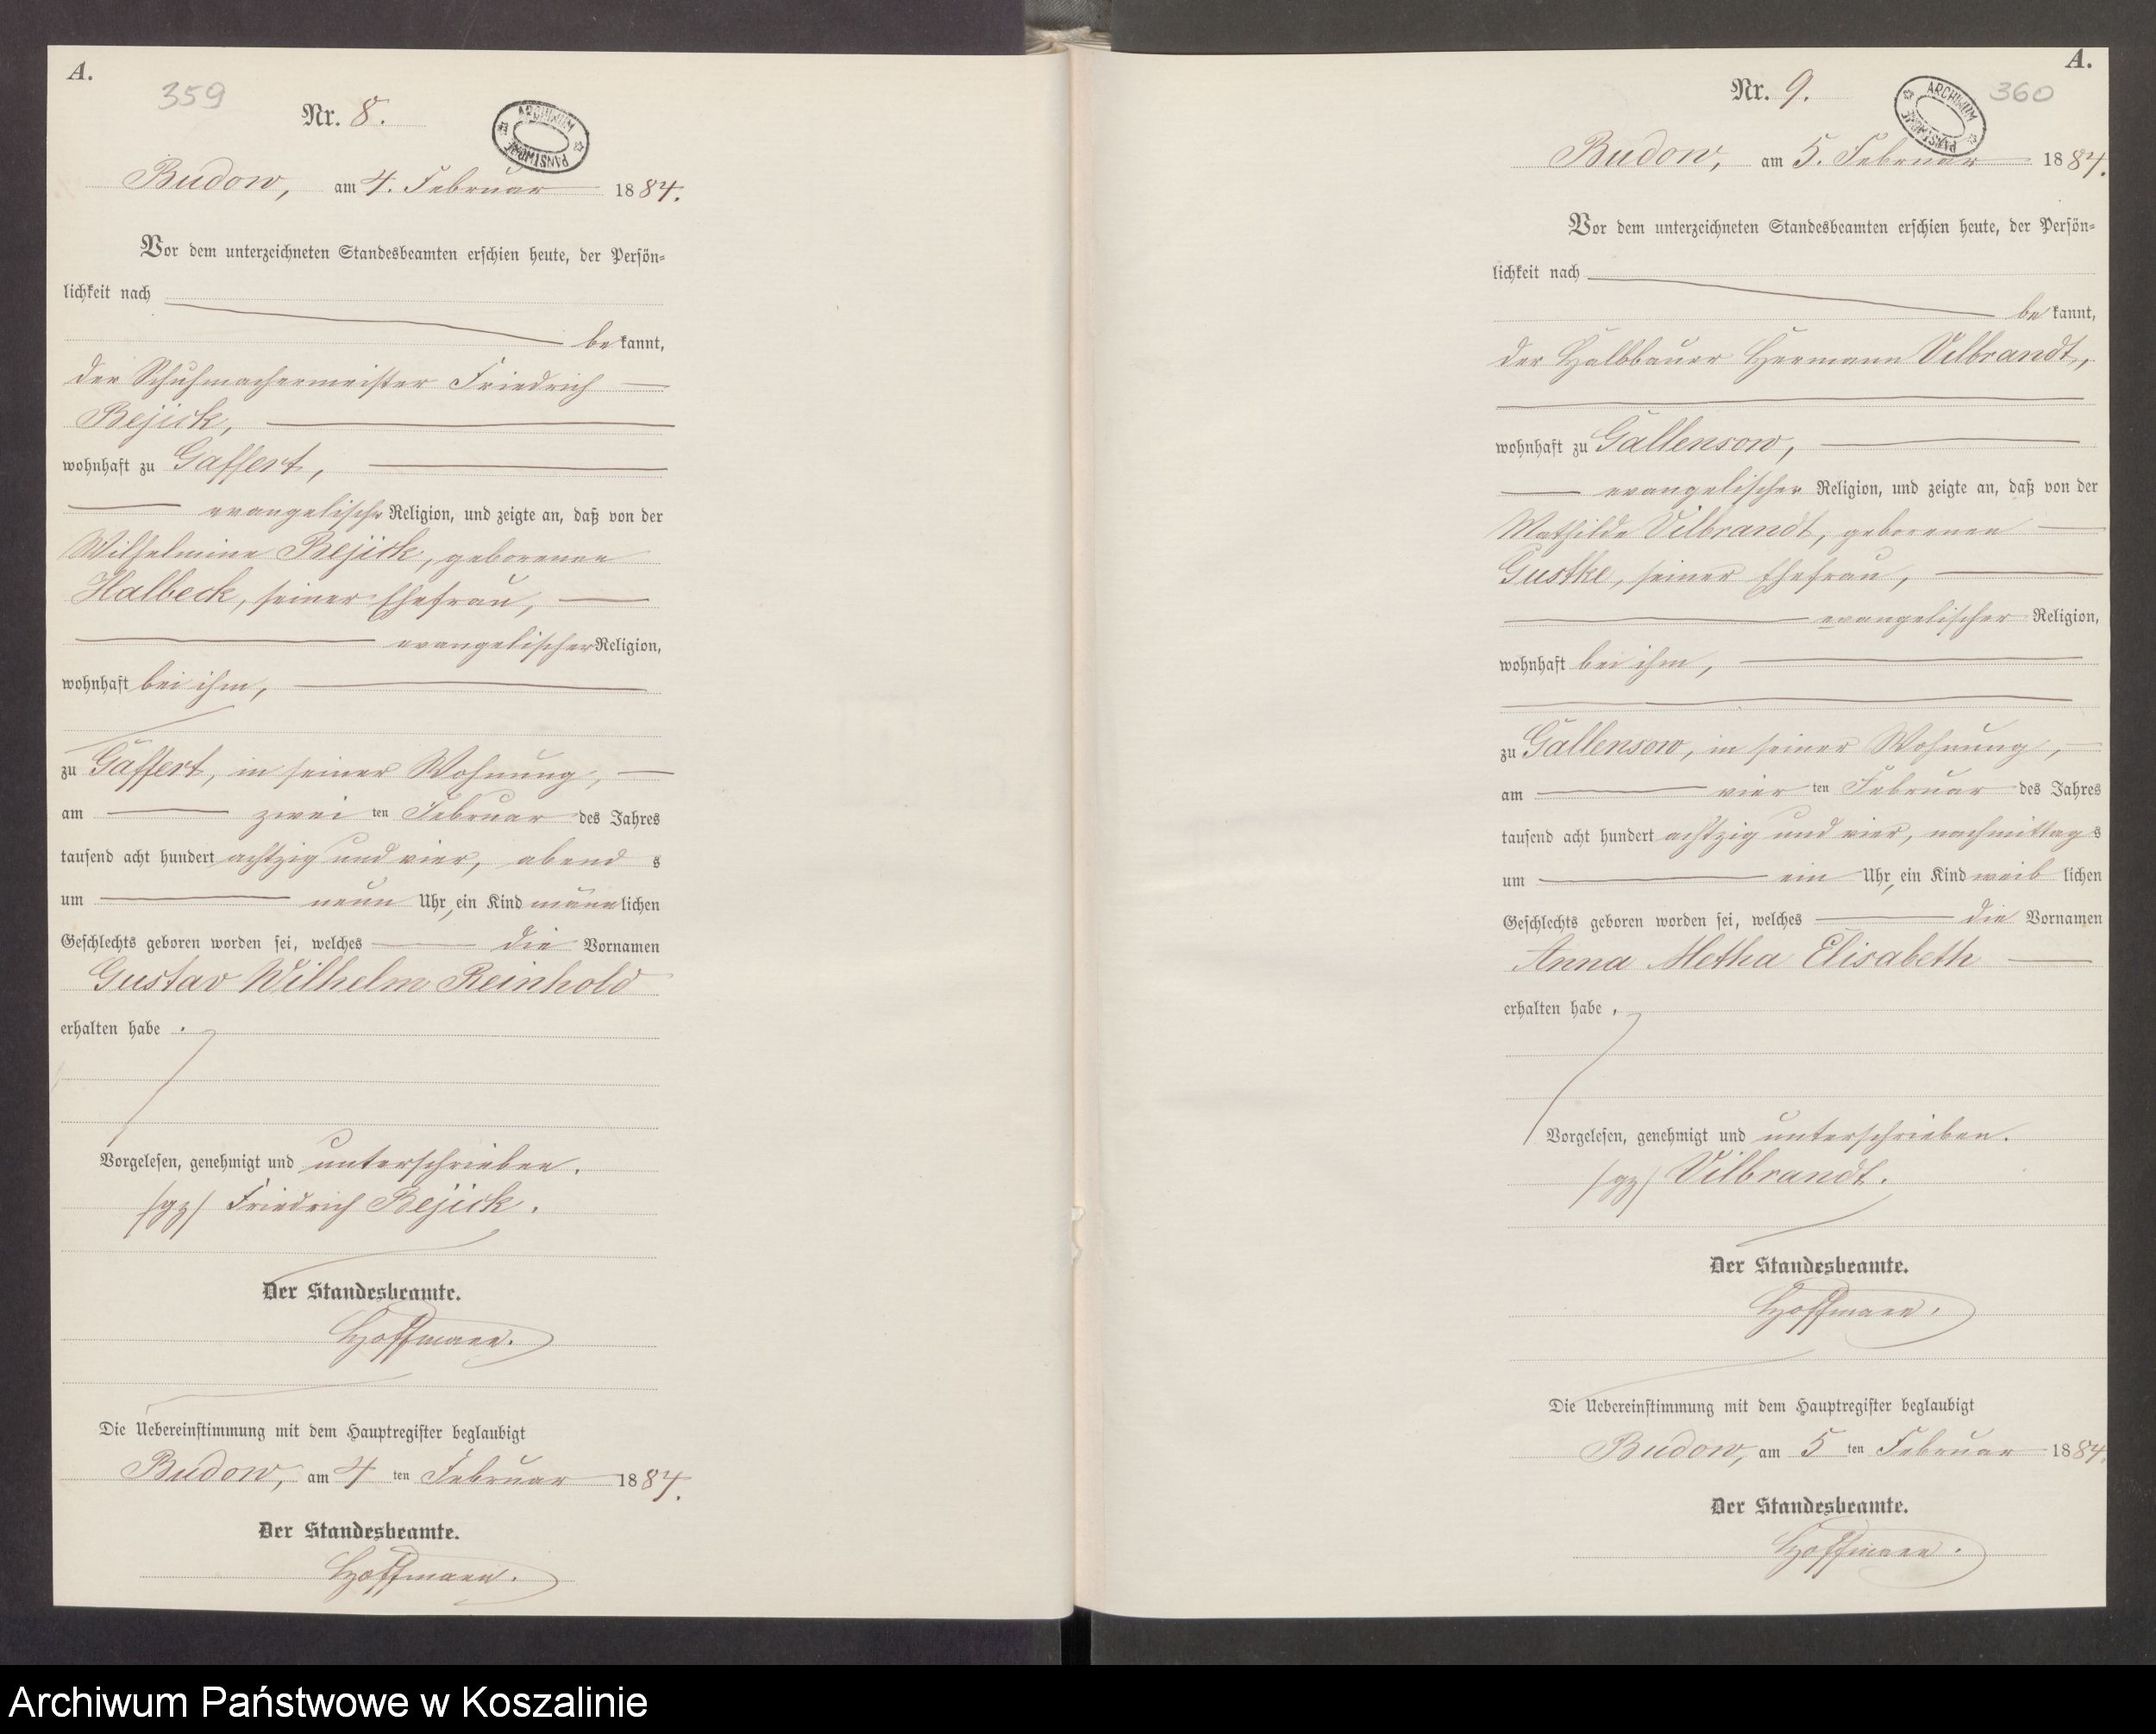 A.
359
Nr. 8.
ARCHIWUM PAŃSTWOWE
Budow, am 4. Februar 1884.
Vor dem unterzeichneten Standesbeamten erschien heute, der Persön-
lichkeit nach
bekannt,
der Schuhmachermeister Friedrich
Bejick,
wohnhaft zu Gaffert,
evangelischer Religion, und zeigte an, daß von der
Wilhelmine Bejick, geborenen
Halbeck, seiner Ehefrau,
evangelischer Religion,
wohnhaft bei ihm,
zu Gaffert, in seiner Wohnung,
am zweiten Februar des Jahres
tausend acht hundert achtzig und vier, abends
um neun Uhr, ein Kind männlichen
Geschlechts geboren worden sei, welches die Vornamen
Gustav Wilhelm Reinhold
erhalten habe.
Vorgelesen, genehmigt und unterschrieben.
/gz/ Friedrich Bejick.
Der Standesbeamte.
Hoffmann.
Die Uebereinstimmung mit dem Hauptregister beglaubigt
Budow, am 4ten Februar 1884.
Der Standesbeamte.
Hoffmann.
A.
Nr. 9.
360
ARCHIWUM PAŃSTWOWE
Budow, am 5. Februar 1884.
Vor dem unterzeichneten Standesbeamten erschien heute, der Persön-
lichkeit nach
bekannt,
der Halbbauer Hermann Vilbrandt,
wohnhaft zu Gallensow,
evangelischer Religion, und zeigte an, daß von der
Mathilde Vilbrandt, geborenen
Gustke, seiner Ehefrau,
evangelischer Religion,
wohnhaft bei ihm,
zu Gallensow, in seiner Wohnung,
am vierten Februar des Jahres
tausend acht hundert achtzig und vier, nachmittags
um ein Uhr, ein Kind weiblichen
Geschlechts geboren worden sei, welches die Vornamen
Anna Metha Elisabeth
erhalten habe.
Vorgelesen, genehmigt und unterschrieben.
/gz/ Vilbrandt.
Der Standesbeamte.
Hoffmann.
Die Uebereinstimmung mit dem Hauptregister beglaubigt
Budow, am 5ten Februar 1884.
Der Standesbeamte.
Hoffmann.
Archiwum Państwowe w Koszalinie